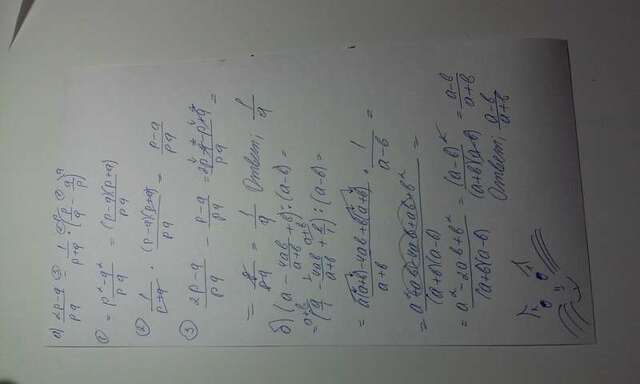 а) (2p-q)/(pq) - 1/(p+q) · (p/q - q/p)
① = (p²-q²)/(pq) = ((p-q)(p+q))/(pq)
② 1/(p+q) · ((p-q)(p+q))/(pq) = (p-q)/(pq)
③ (2p-q)/(pq) - (p-q)/(pq) = (2p-q-p+q)/(pq) =
= p/(pq) = 1/q Ответ: 1/q
б) (a - 4ab/(a+b) + b) : (a-b) =
= (a/1 - 4ab/(a+b) + b/1) : (a-b) =
= (a(a+b)-4ab+b(a+b))/(a+b) · 1/(a-b) =
= (a²+ab-4ab+ab+b²)/((a+b)(a-b)) =
= (a²-2ab+b²)/((a+b)(a-b)) = (a-b)²/((a+b)(a-b)) = (a-b)/(a+b)
Ответ: (a-b)/(a+b)